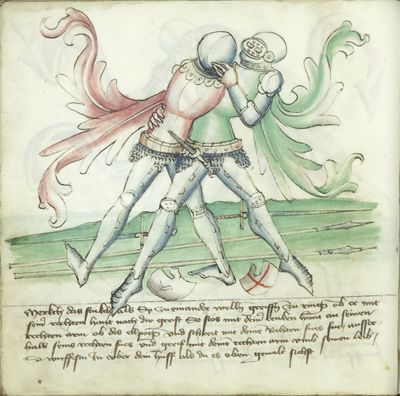 Merckch das stuckch als Sy zu einander welln greiffn zu ringn ob er mit
seiner rechten hant nach dir greift So stos mit deiner lenkcen hant an seinen
rechten arm ob des elpogn und schreit mit deinem rechten fues fur ausser
halb seins rechten fues und greif mit deinem rechten arm umb seinen leib
So wirffestu In uber dein huff als du es oben gemalt sichst